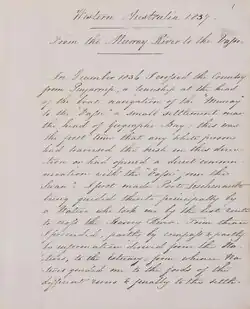 Western Australia 1837.
From the Murray River to the Vasse.
In December 1836 I crossed the Country
from Pinjarrup, a township at the head
of the boat navigation of the "Murray"
to the Vasse a small settlement near
the head of Geographe Bay, this was
the first time that any white person
had traversed the bush in this direc-
tion or had opened a direct commu-
nication with the Vasse from the
Swan. I first made Port Leschenault
being guided thither principally by
a Native who took me by the best route
to reach the Harvey River. From thence
I proceeded, partly by compass & partly
by information derived from the Na-
tives, to the estuary from whence Na-
tives guided me to the fords of the
different rivers & finally to this settle-